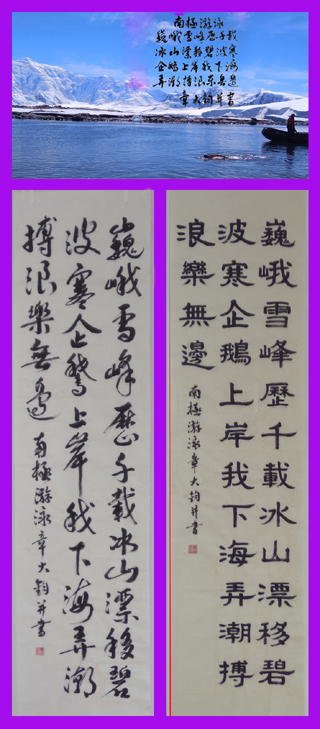 南極游泳
巍峨雪峰歷千載
冰山漂移碧波寒
企鵝上岸我下海
弄潮搏浪樂無邊
章大鈞并書
巍峨雪峰歷千載冰山漂移碧
波寒企鵝上岸我下海弄潮搏
浪樂無邊
南極游泳章大鈞并書
巍峨雪峰歷千載冰山漂移碧
波寒企鵝上岸我下海弄潮
搏浪樂無邊
南極游泳章大鈞并書